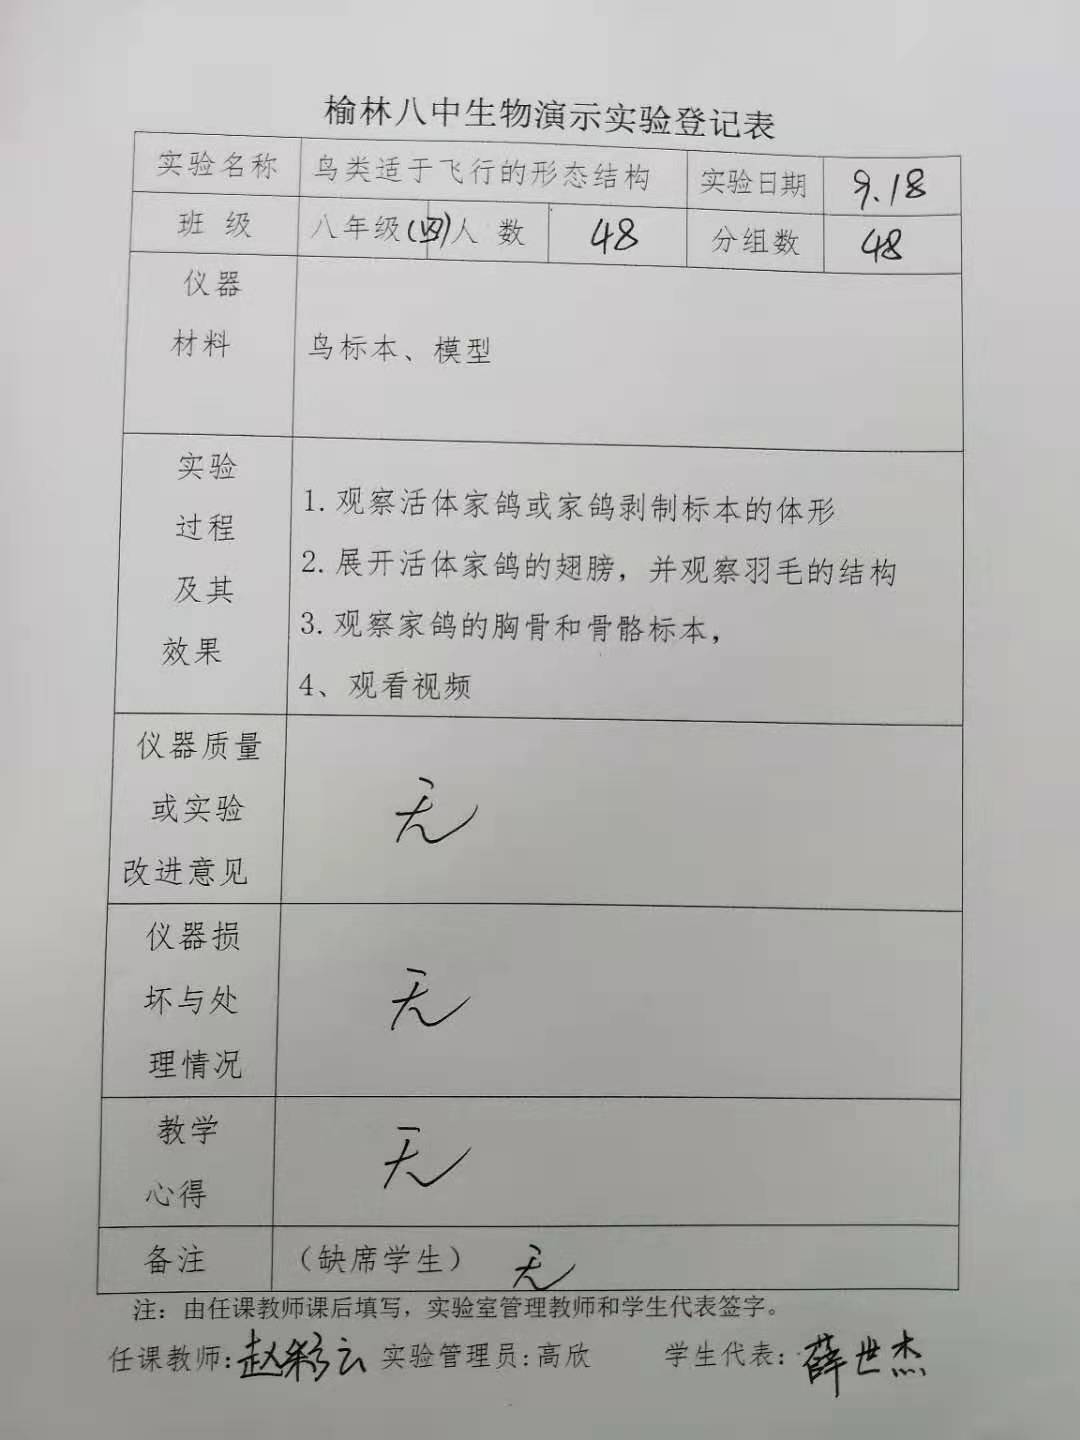 榆林八中生物演示实验登记表
实验名称 鸟类适于飞行的形态结构 实验日期 9.18
班 级 八年级(四) 人 数 48 分组数 48
仪器
材料
鸟标本、模型
实验
过程
及其
效果
1.观察活体家鸽或家鸽剥制标本的体形
2.展开活体家鸽的翅膀，并观察羽毛的结构
3.观察家鸽的胸骨和骨骼标本，
4、观看视频
仪器质量
或实验
改进意见
无
仪器损
坏与处
理情况
无
教学
心得
无
备注 （缺席学生） 无
注：由任课教师课后填写，实验室管理教师和学生代表签字。
任课教师:赵彩云 实验管理员:高欣 学生代表:薛世杰